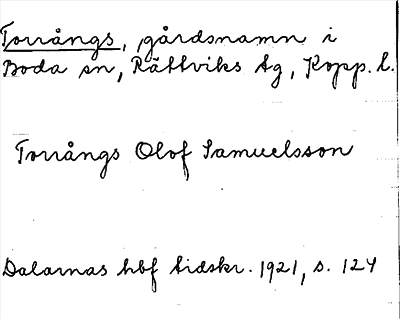 Torrångs, gårdsnamn i
Boda sn, Rättviks tg, Kopp. l.
Torrångs Olof Samuelsson
Dalarnas hbf tidskr. 1921, s. 124